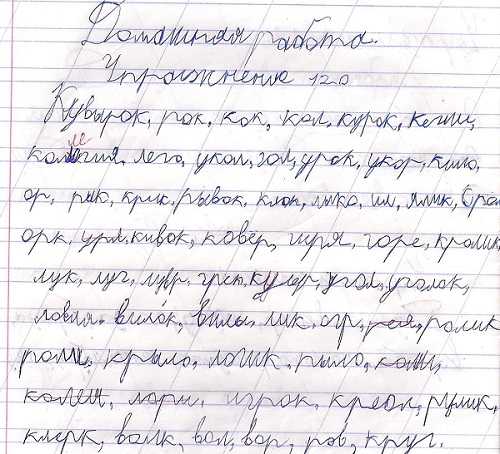 Домашняя работа.
Упражнение 120
Кувырок, рок, кок, кол, курок, кегли,
колегия, лего, укол, гол, урок, укор, кило,
ор, рык, крик, рывок, клон, лыко, ил, ялик,
орк, урл, кивок, ковёр, гиря, горе, кролик
лук, луг, лувр, грек, кулер, угол, уголок,
ловля, вилок, вилы, лик, игр, рея, ролик
роли, крыло, логик, рыло, коли,
колет, лори, игрок, креол, рулик,
клерк, волк, вол, вор, ров, круг.